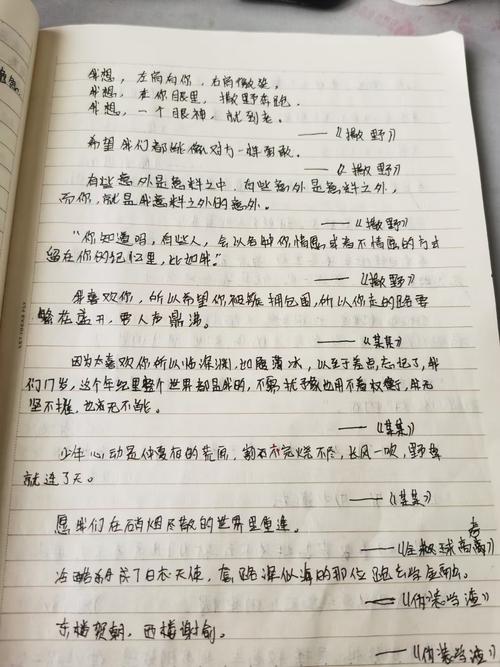 我想，左肩有你，右肩微笑。
我想，在你眼里，撒野奔跑。
我想，一个眼神，就到老。
——《撒野》
希望我们都能像对方一样勇敢。
——《撒野》
有些意外是意料之中，有些意外是意料之外，
而你，就是我意料之外的意外。
——《撒野》
“你知道吗，有些人，会以各种你情愿或者不情愿的方式
留在你的记忆里，比如我。”
——《撒野》
我喜欢你，所以希望你被簇拥包围，所以你走的路要
繁花盛开，要人声鼎沸。
——《某某》
因为太喜欢你所以临深渊，如履薄冰，以至于差点忘记了，我
们17岁，这个年纪里整个世界都是我的，不需犹豫也用不着权衡，我无
坚不摧，也无所不能。
——《某某》
少年心动是仲夏夜的荒原，割不完烧不尽，长风一吹，野草
就连了天。
——《某某》
愿我们在硝烟尽散的世界里重逢。
——《全球高考》
冷酷
成了日天使，套路深似海的那位跑去学
——《伪装学渣》
东楼贺朝，西楼谢俞。
——《伪装学渣》